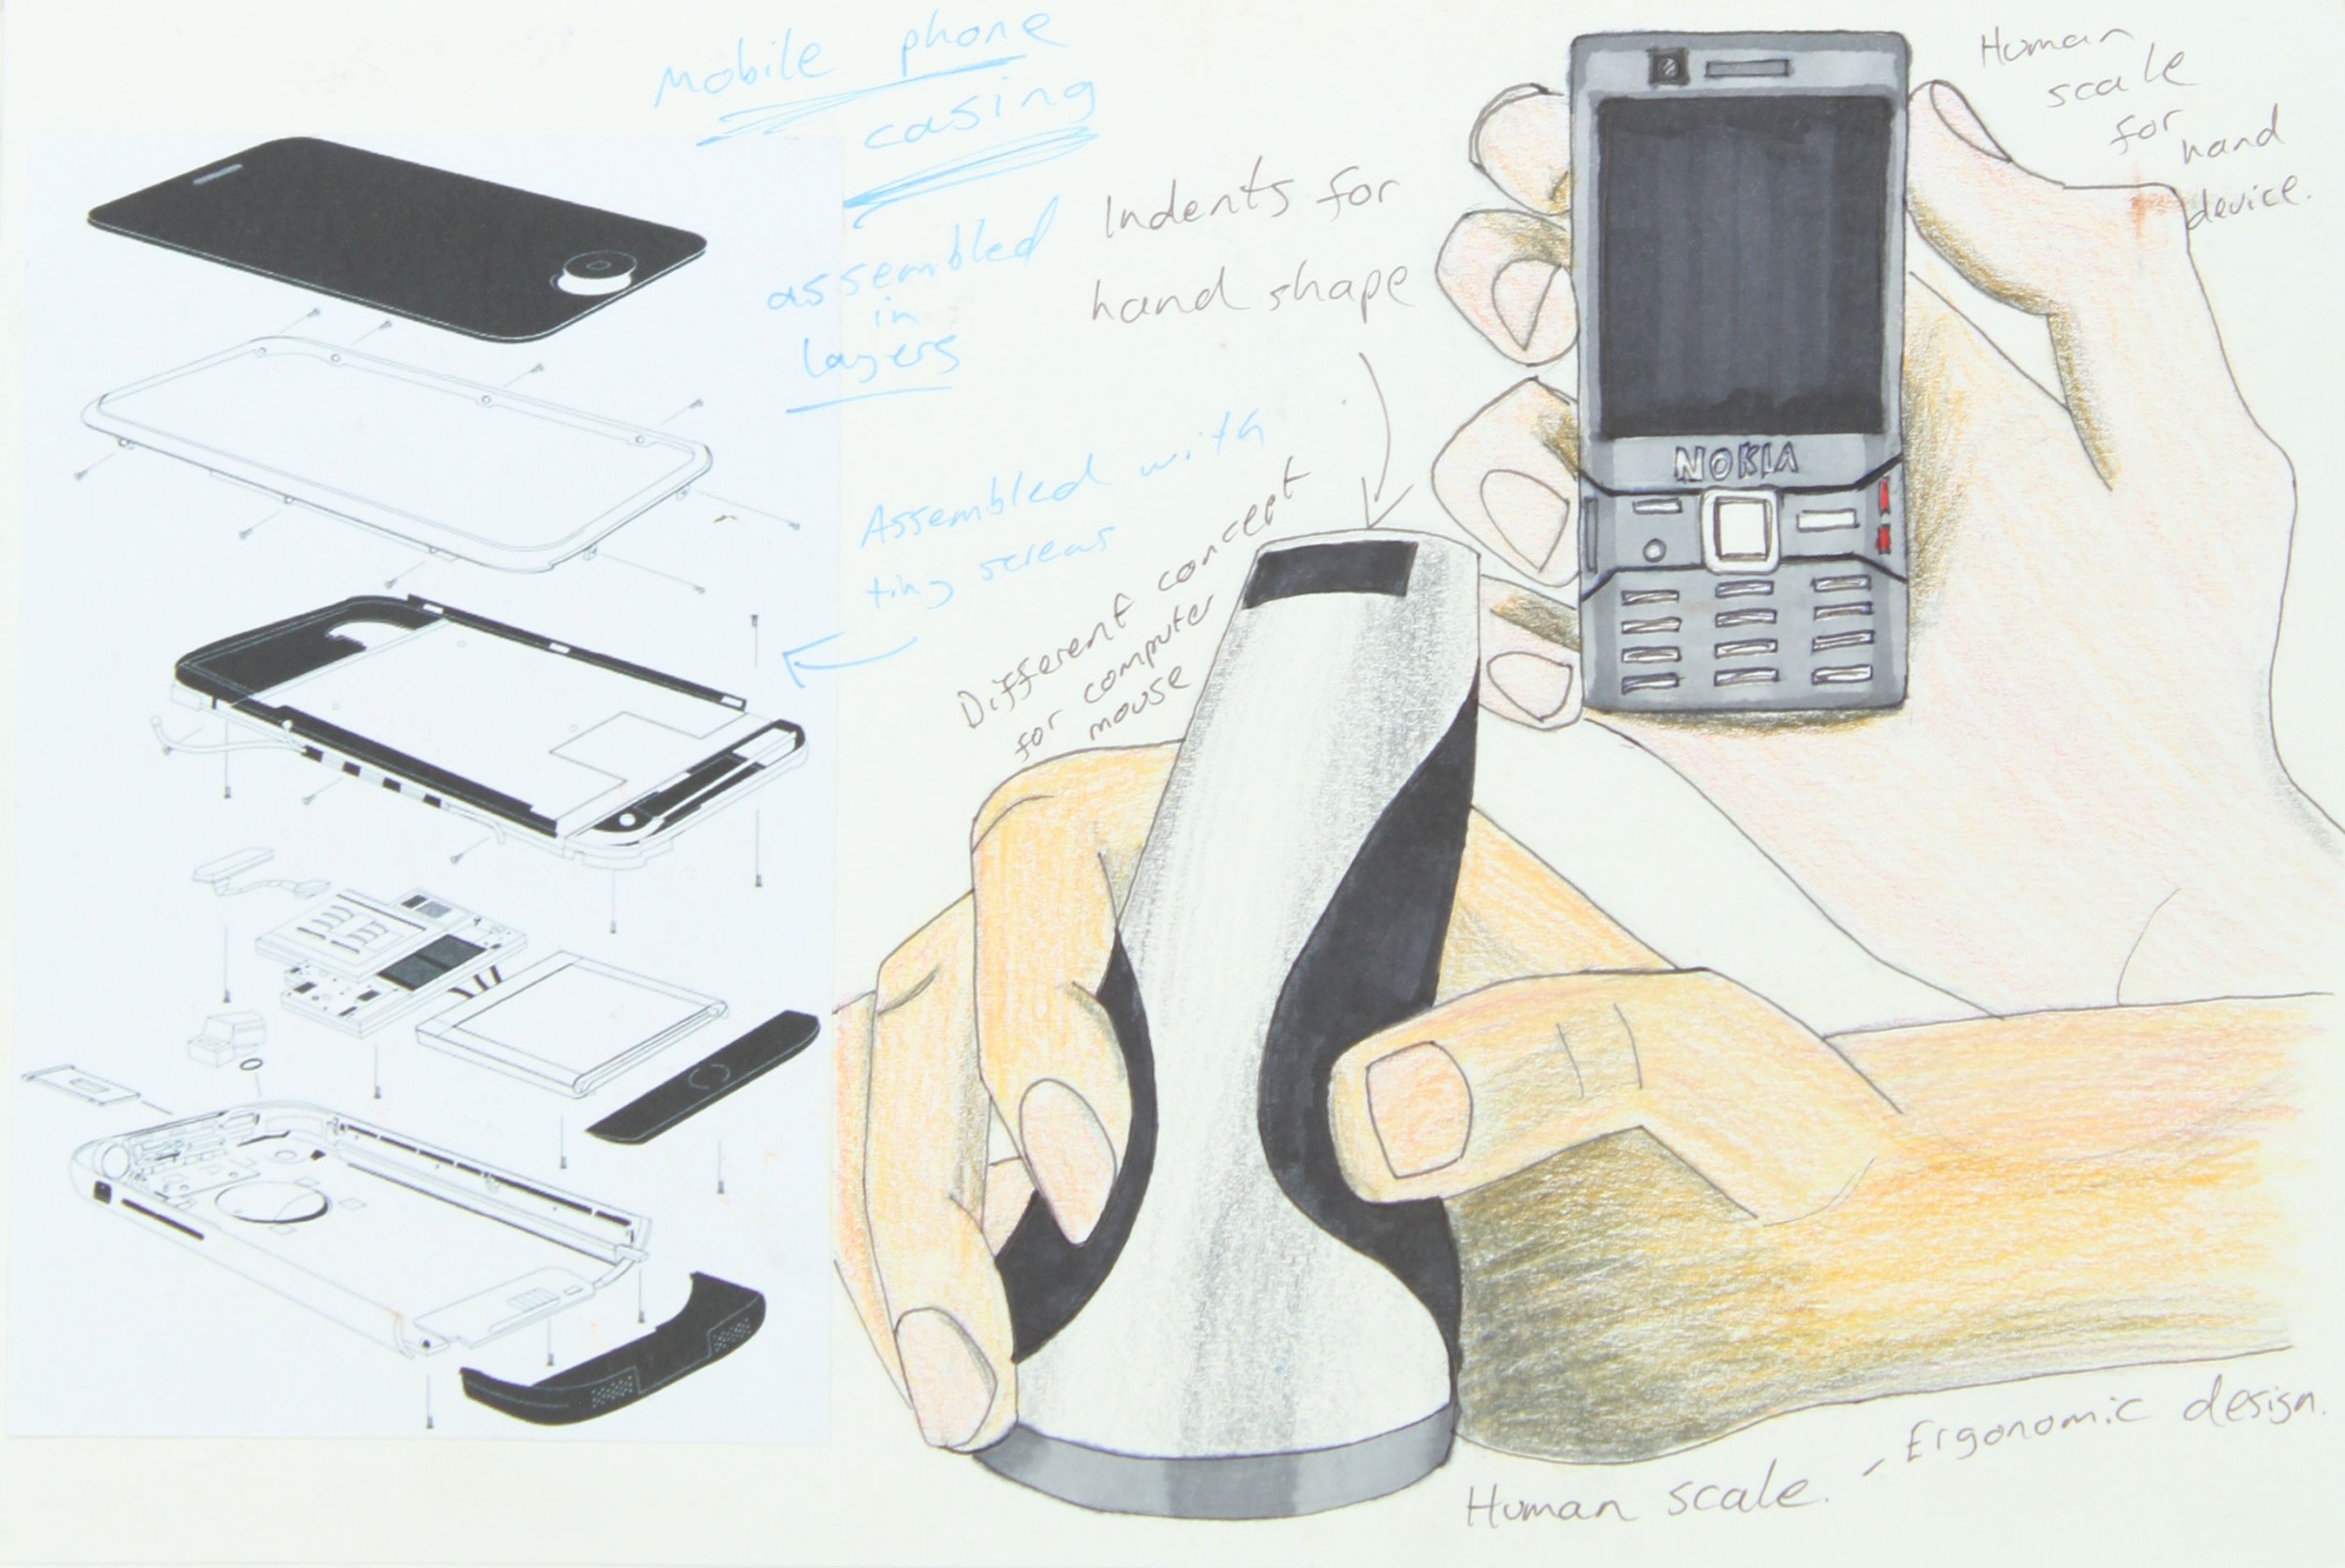 Mobile phone
casing
assembled
in
layers
Assembled with
tiny screws
Indents for
hand shape
Different concept
for computer
mouse
Human
scale
for hand
device.
NOKIA
Human scale. - Ergonomic design.